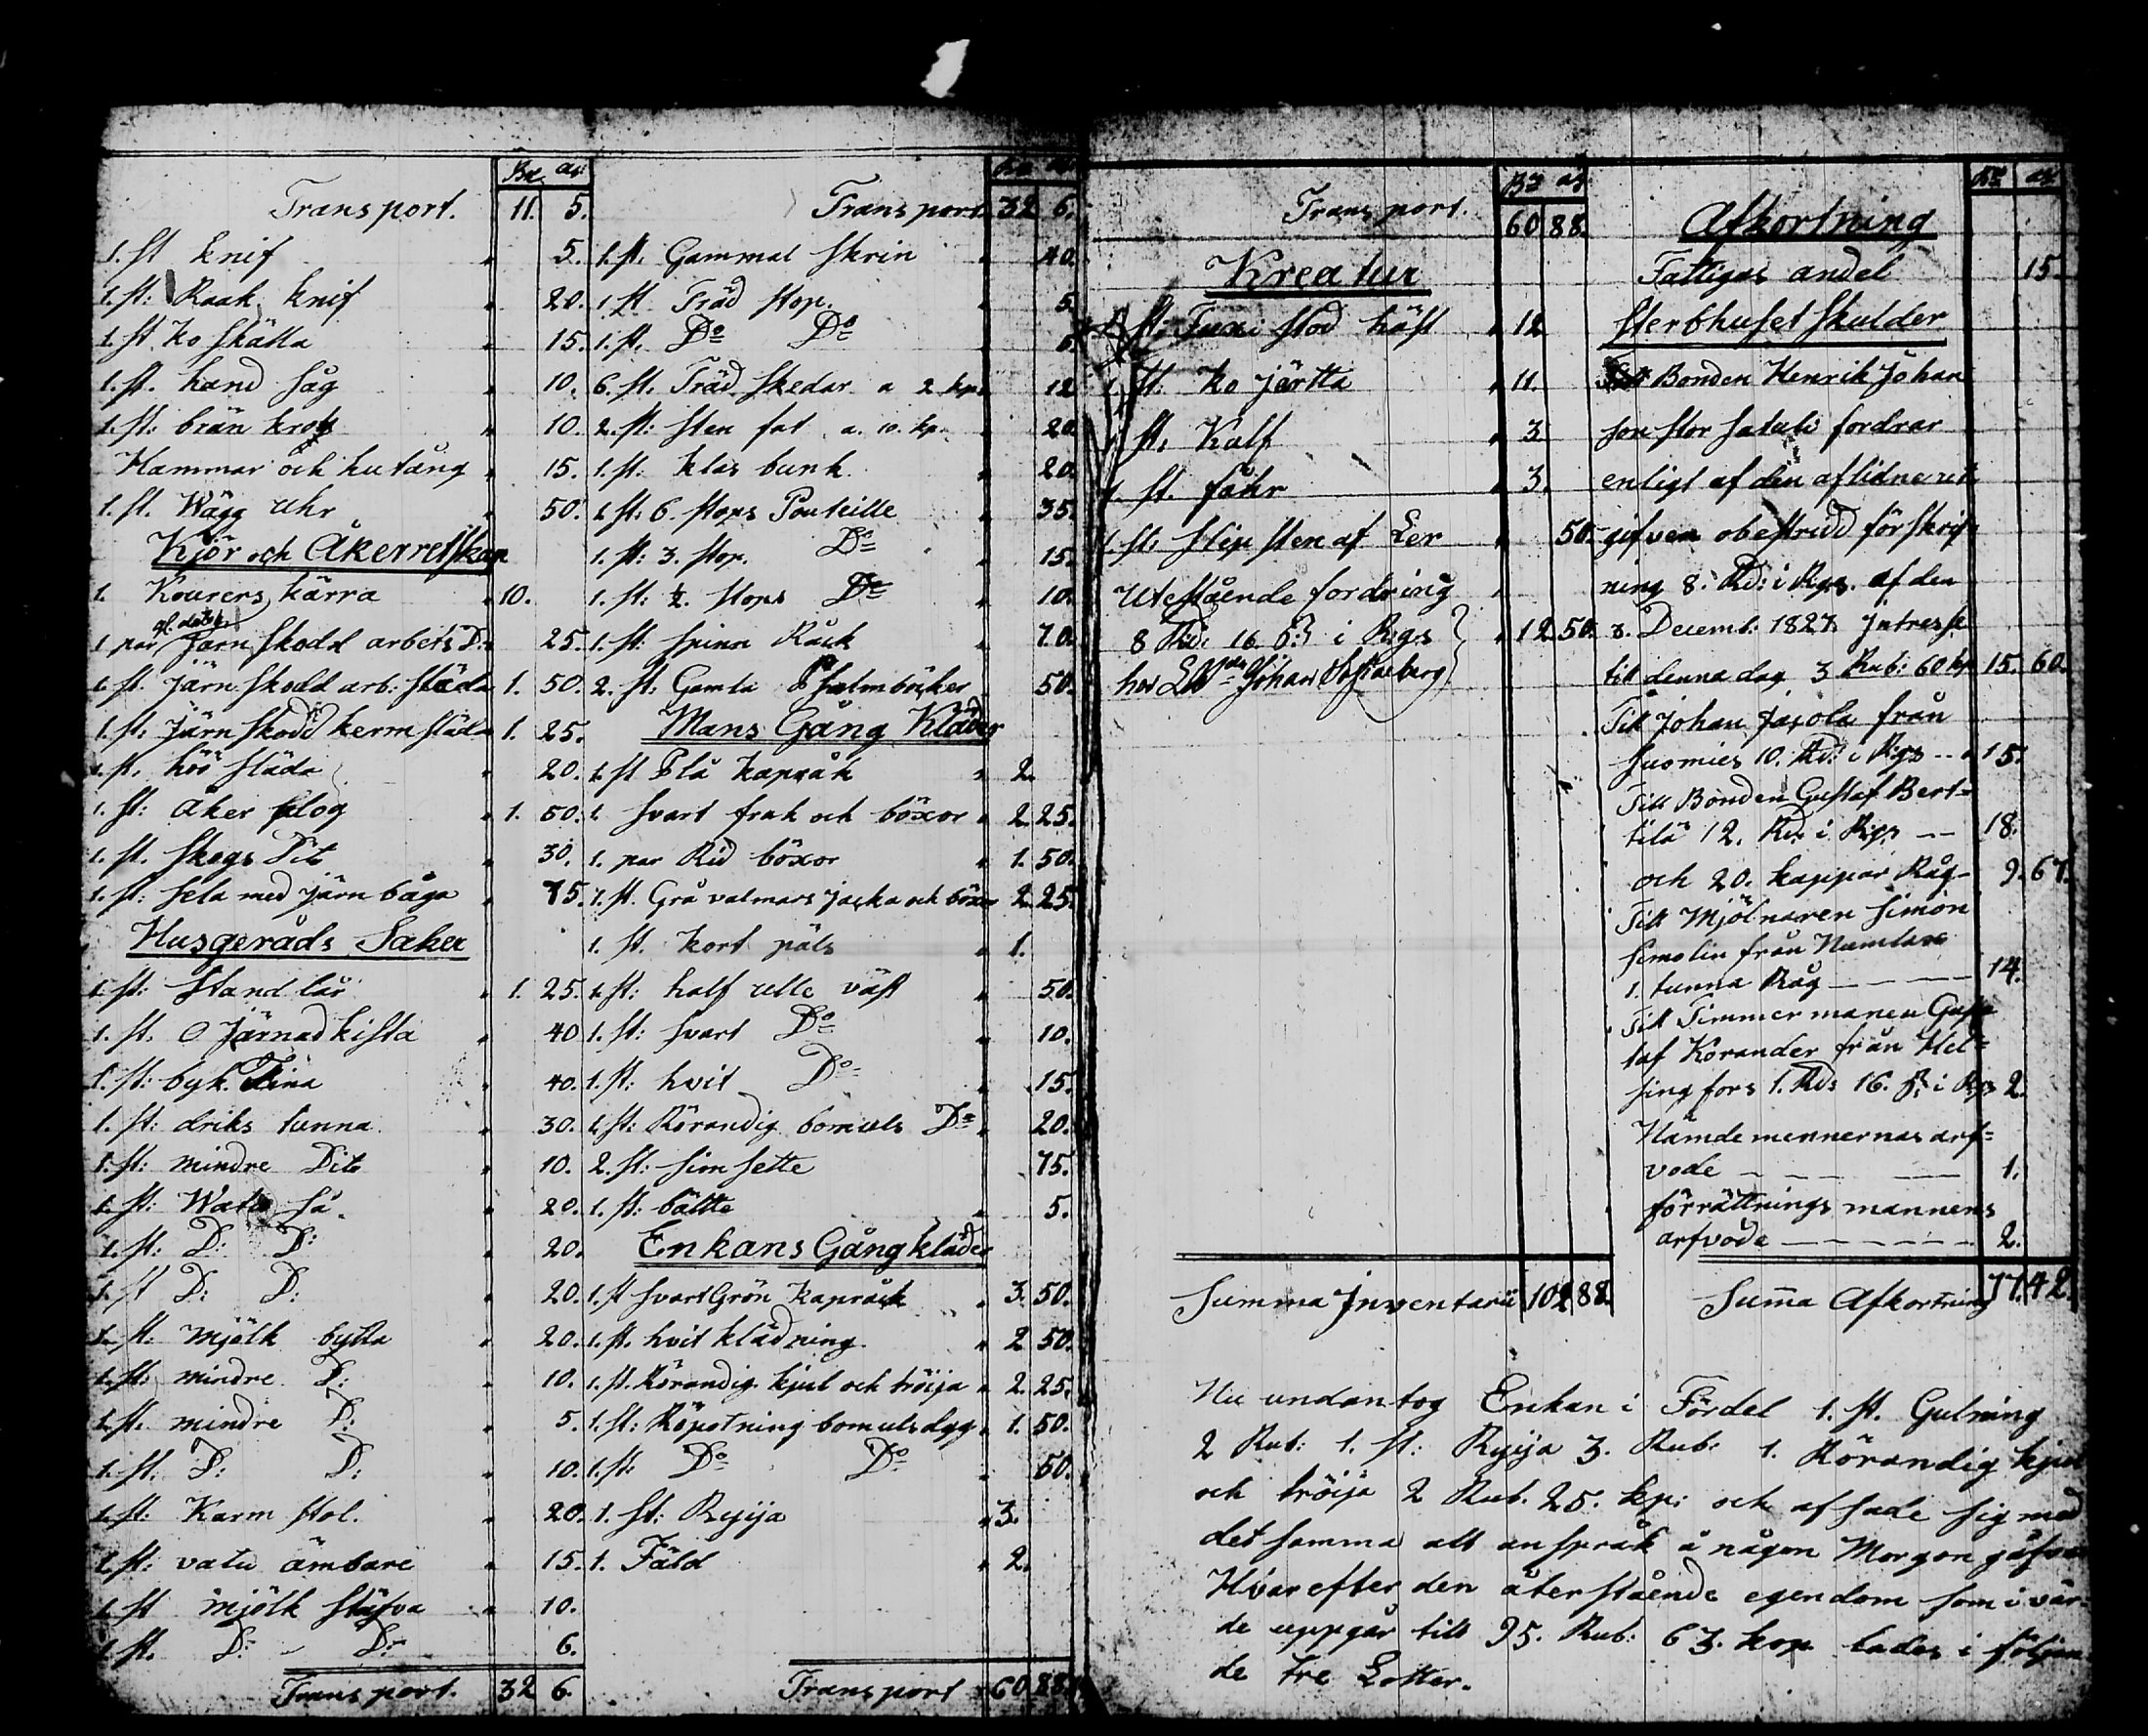 Transport. 11. 5.
1. st knif " 5.
1. st: Raak knif " 20.
1. st. ko skälla " 15.
1. st. hand såg " 10.
1. st: brän krok " 10.
Hammar och hutång " 15.
1. st. Wägg uhr " 50.
Kjör och Åkerretskap
1. Kourers kärra " 10.
1 par Järn skodd arbets D: 25.
1. st. Järn skodd arb: släda 1. 50.
1. st. Järn skodd kerm släda 1. 25.
1. st. höö släda " 20.
1. st: åker plog " 1. 50.
1. st. skogs Dito " 30.
1. st: sela med järn båga " 75.
Husgeråds Saker
1. st: stand lår " 1. 25.
1. st. O Järnad kista " 40
1. st: byk Tina " 40.
1. st: driks tunna " 30.
1. st: mindre Dito " 10.
1. st: Watu så " 20.
1. st: D: D: " 20.
1. st D: D: " 20.
1. st. mjölk bytta " 20.
1. st: mindre D: " 10.
1. st. mindre D: " 5.
1. st. D: D: " 10.
1. st: Karm stol. " 20.
1. st: vatu ämbare " 15.
1. st mjölk stäfva " 10.
1. st. D: D: 6.
Transport. 32 6.
Transport 32 6.
1. st. Gammal skrin " 40.
1. st Träd stop. " 5.
1. st. Do Do "
6. st. Träd skedar a 2 kp. 12
2. st: sten fat a. 10. kp. " 20.
1. st: klas bunk " 20.
1. st: 6. stops Pouteille " 35.
1. st: 3. stop. Do " 15.
1. st: ½. stops Do " 10.
1. st: spinn Råck " 70.
2. st: Gamla Psalmböcker 50.
Mans Gång Kläder
1. st Blå kapråk " 2.
1. svart frak och böxor " 2. 25.
1. par Rid böxor " 1. 50.
1. st. Grå valmars jacka och böxor 2. 25.
1. st. kort päls " 1.
1. st: half ulle väst " 50.
1. st: svart Do " 10.
1. st: hvit Do " 15.
1. st: Rörandig bomuls Do " 20.
2. st: sim sette 75.
1. st: bältte " 5.
Enkans Gångkläder
1. st svart Grön kapråck " 3. 50.
1. st. hvit klädning " 2 50.
1. st. Rörandig kjul och tröija " 2. 25.
1. st: bomuls " 1. 50.
1. st: Do Do " 50.
1. st: Ryija " 3.
1. Fäld " 2.
Transport 60 88.
Transport. 60 88.
Kreatur
st. stod häst " 12
1. st: ko Järtta " 11.
1 st. Kalf " 3
1 st. fåhr " 3.
1. st. slip sten af Ler " 50.
Utestående fordring
8 Rd: 16. i Rgs " 12 50.
hos Johan
Summa Inventarii 102 88.
Afkortning
Fattigas andel 15.
sterbhuset skulder
Till Bonden Henrik Johan
son stor satuli fordrar
enligt af den aflidne ut
gifven obestridd förskrif
ning 8. Rd: i Rgs. af den
3. Decemb: 1827. Jntresse
till denna dag 3 Rub: 60 kp 15. 60.
Till Johan från
Suomies 10. Rd: i Rgs -- " 15.
Till Bonden Gustaf Bert=
tilä 12. Rd: i Rgs -- 18.
och 20. kappar Råg- 9. 67.
Till Mjölnaren Simon
Simolin från
1. tunna Råg - - - 14.
Till Timmermanen Gus=
taf Korander från Hel=
singfors 1. Rd: 16. i Rgs 2.
Nämdemennernas arf=
vode - - - 1.
förrättnings mannens
arfvode - - - - - 2.
Summa Afkortning 77. 42.
Nu undantog Enkan i Fördel 1. st. Gulning
2 Rub: 1. st: Ryija 3. Rub: 1. Rörandig kjul
och tröija 2 Rub. 25. kp: och afsade sig med
det samma alt anspråk å någon Morgon gåfva
Hvarefter den återstående egendom som i vär=
de uppgår till 95. Rub: 63. kop lades i följan
de tre Lotter.